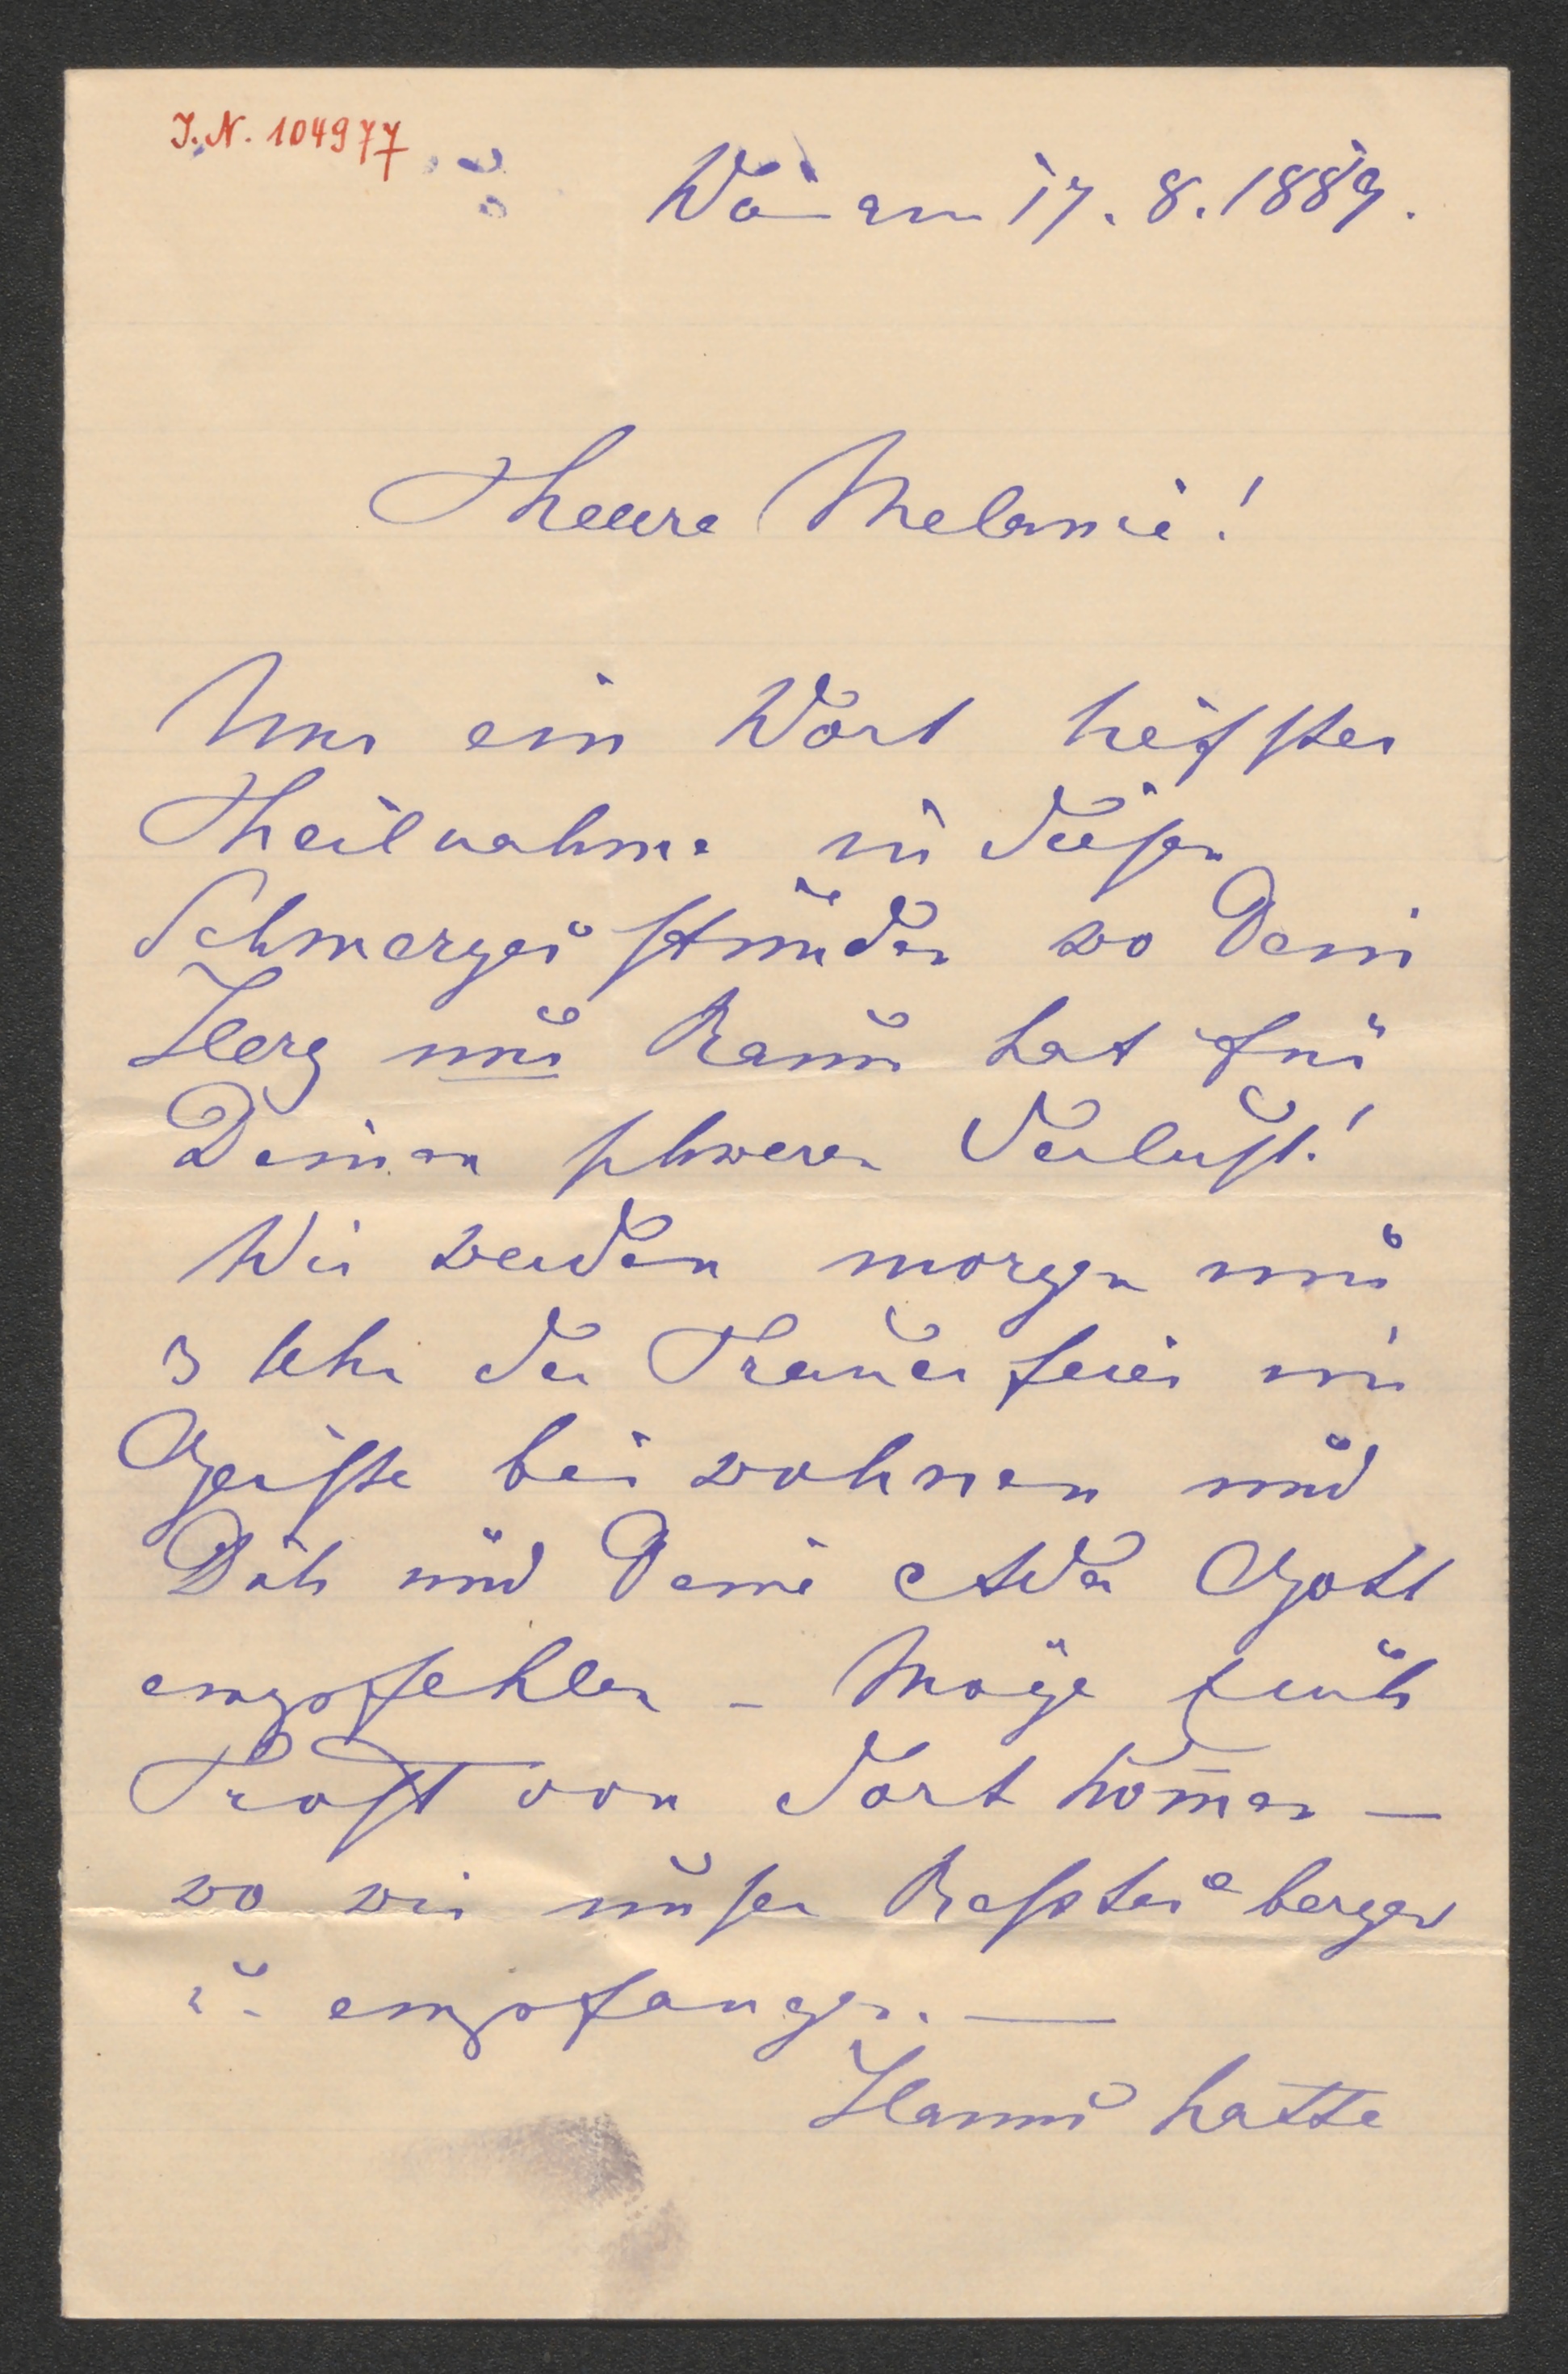 I.N. 104977
am 17. 8. 1889.
Theure Melanie!
Nur ein Wort tiefster
Theilnahme in diesen
Schmerzensstunden wo Dein
Herz nur Raum hat für
Deinen schweren Verlust!
Wir werden morgen um
3 Uhr der Trauerfeier im
Geiste beiwohnen und
Dich und Deine Gott
empfehlen – Möge Euch
Trost von dort kom̅en —
wo wir unser Bestes
u. empfangen. —
Hanni